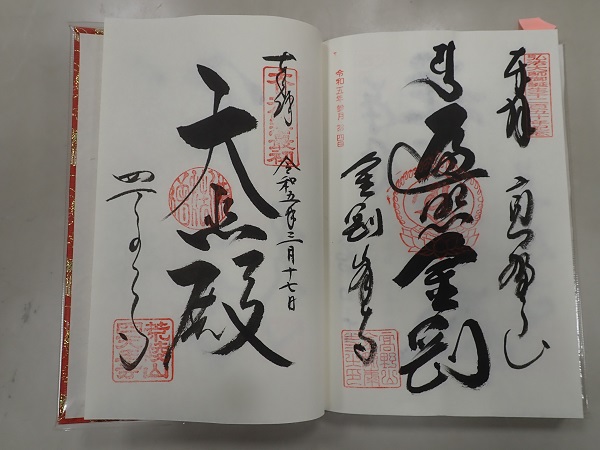 奉拝 高野山
南無
遍照金剛
金剛峯寺
奉拝
令和五年三月十七日
大悲殿
四天王寺